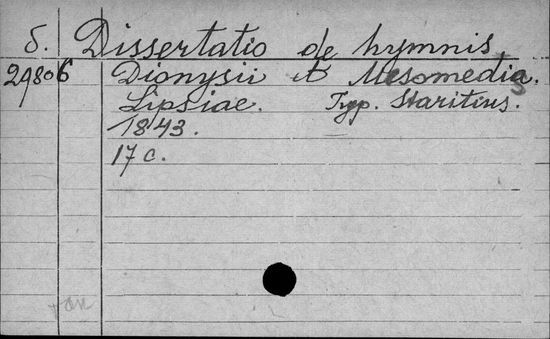 б. Dissertatio de hymnis
29806 Dionysii et Mesomedis.
Lipsiae. Typ. Staritius.
1843.
17 c.